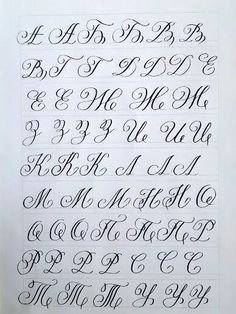 А А Б Б В В
В Г Г Д Д Д Е
Е Е Ж Ж Ж
З З З И И И
К К К Л Л Л
М М М Н Н О
О О О П П П Р
Р Р Р С С С
Т Т Т У У У